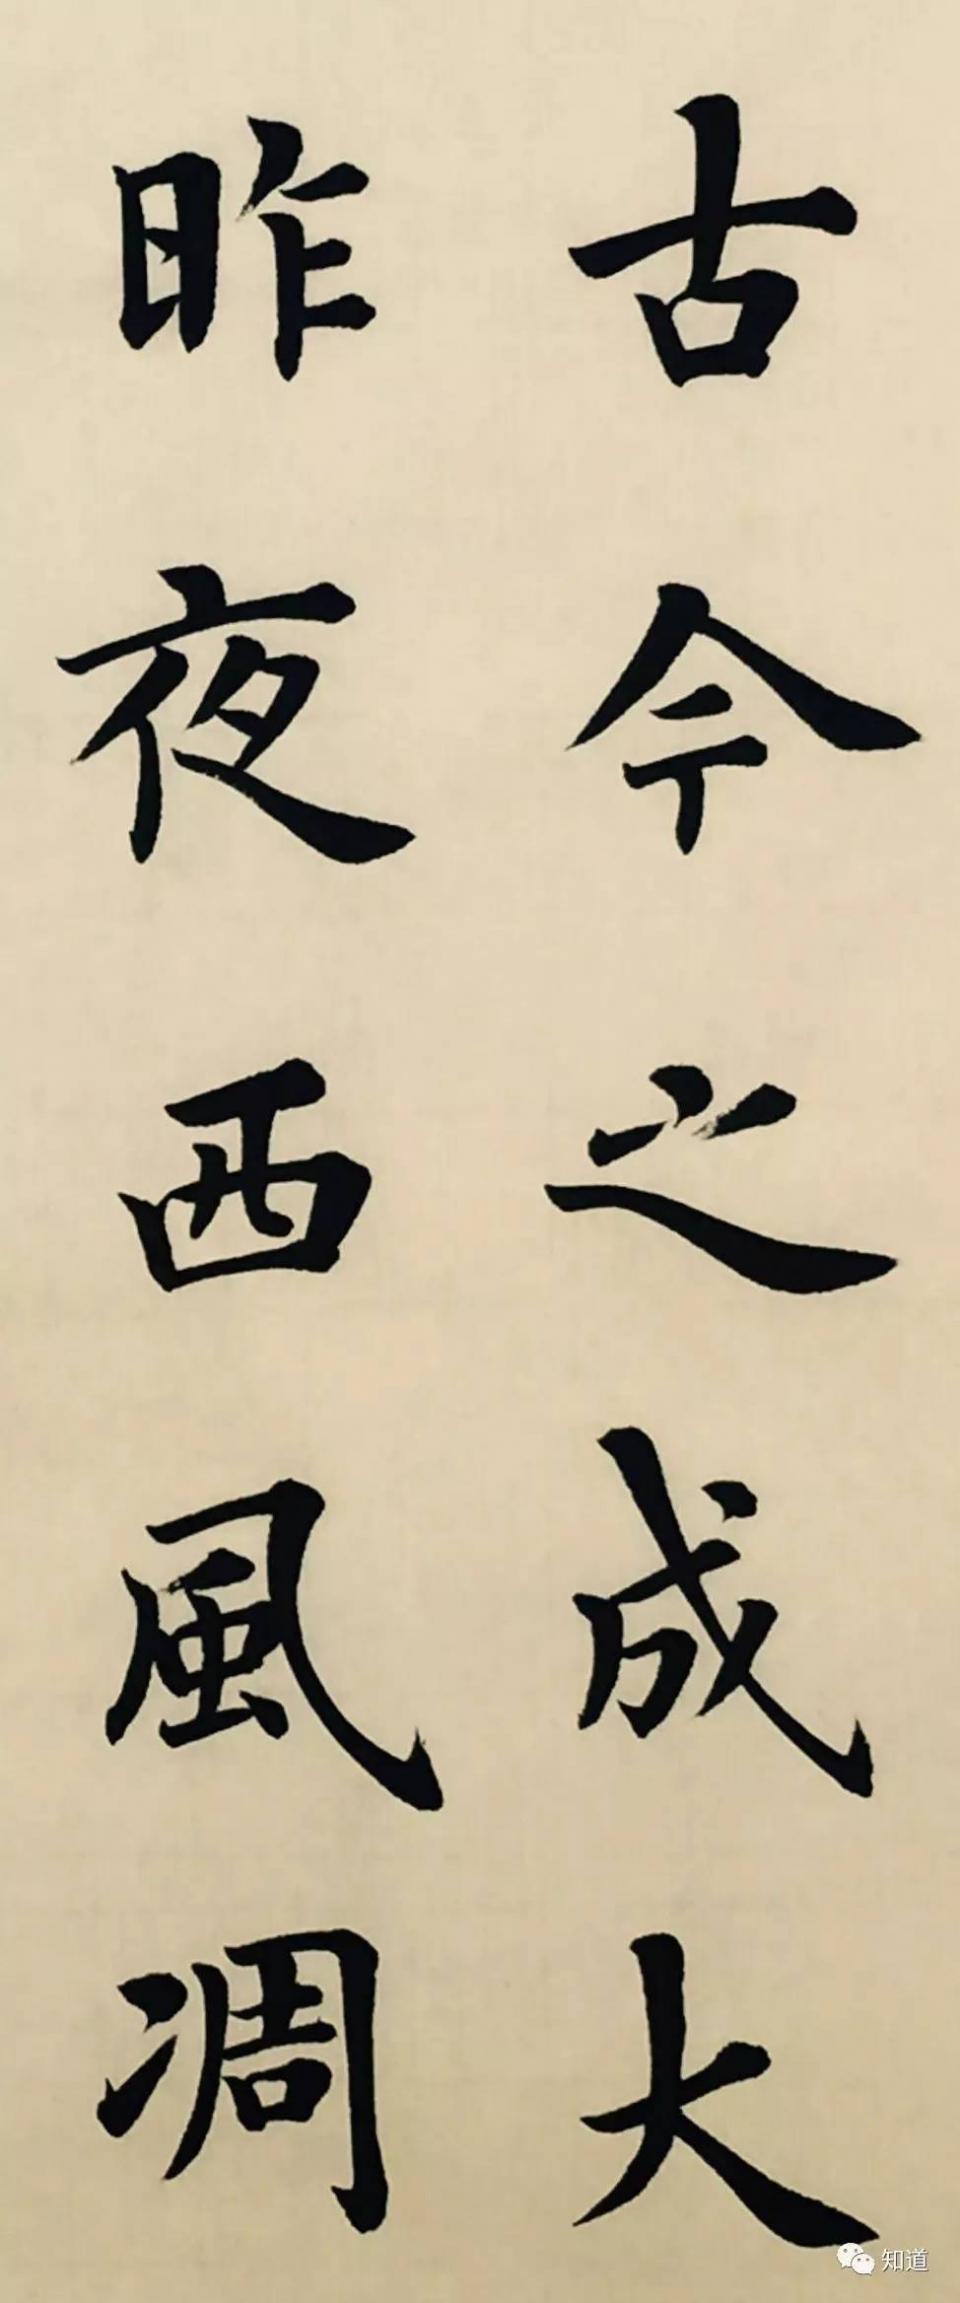 古今之成大
昨夜西風凋
知道